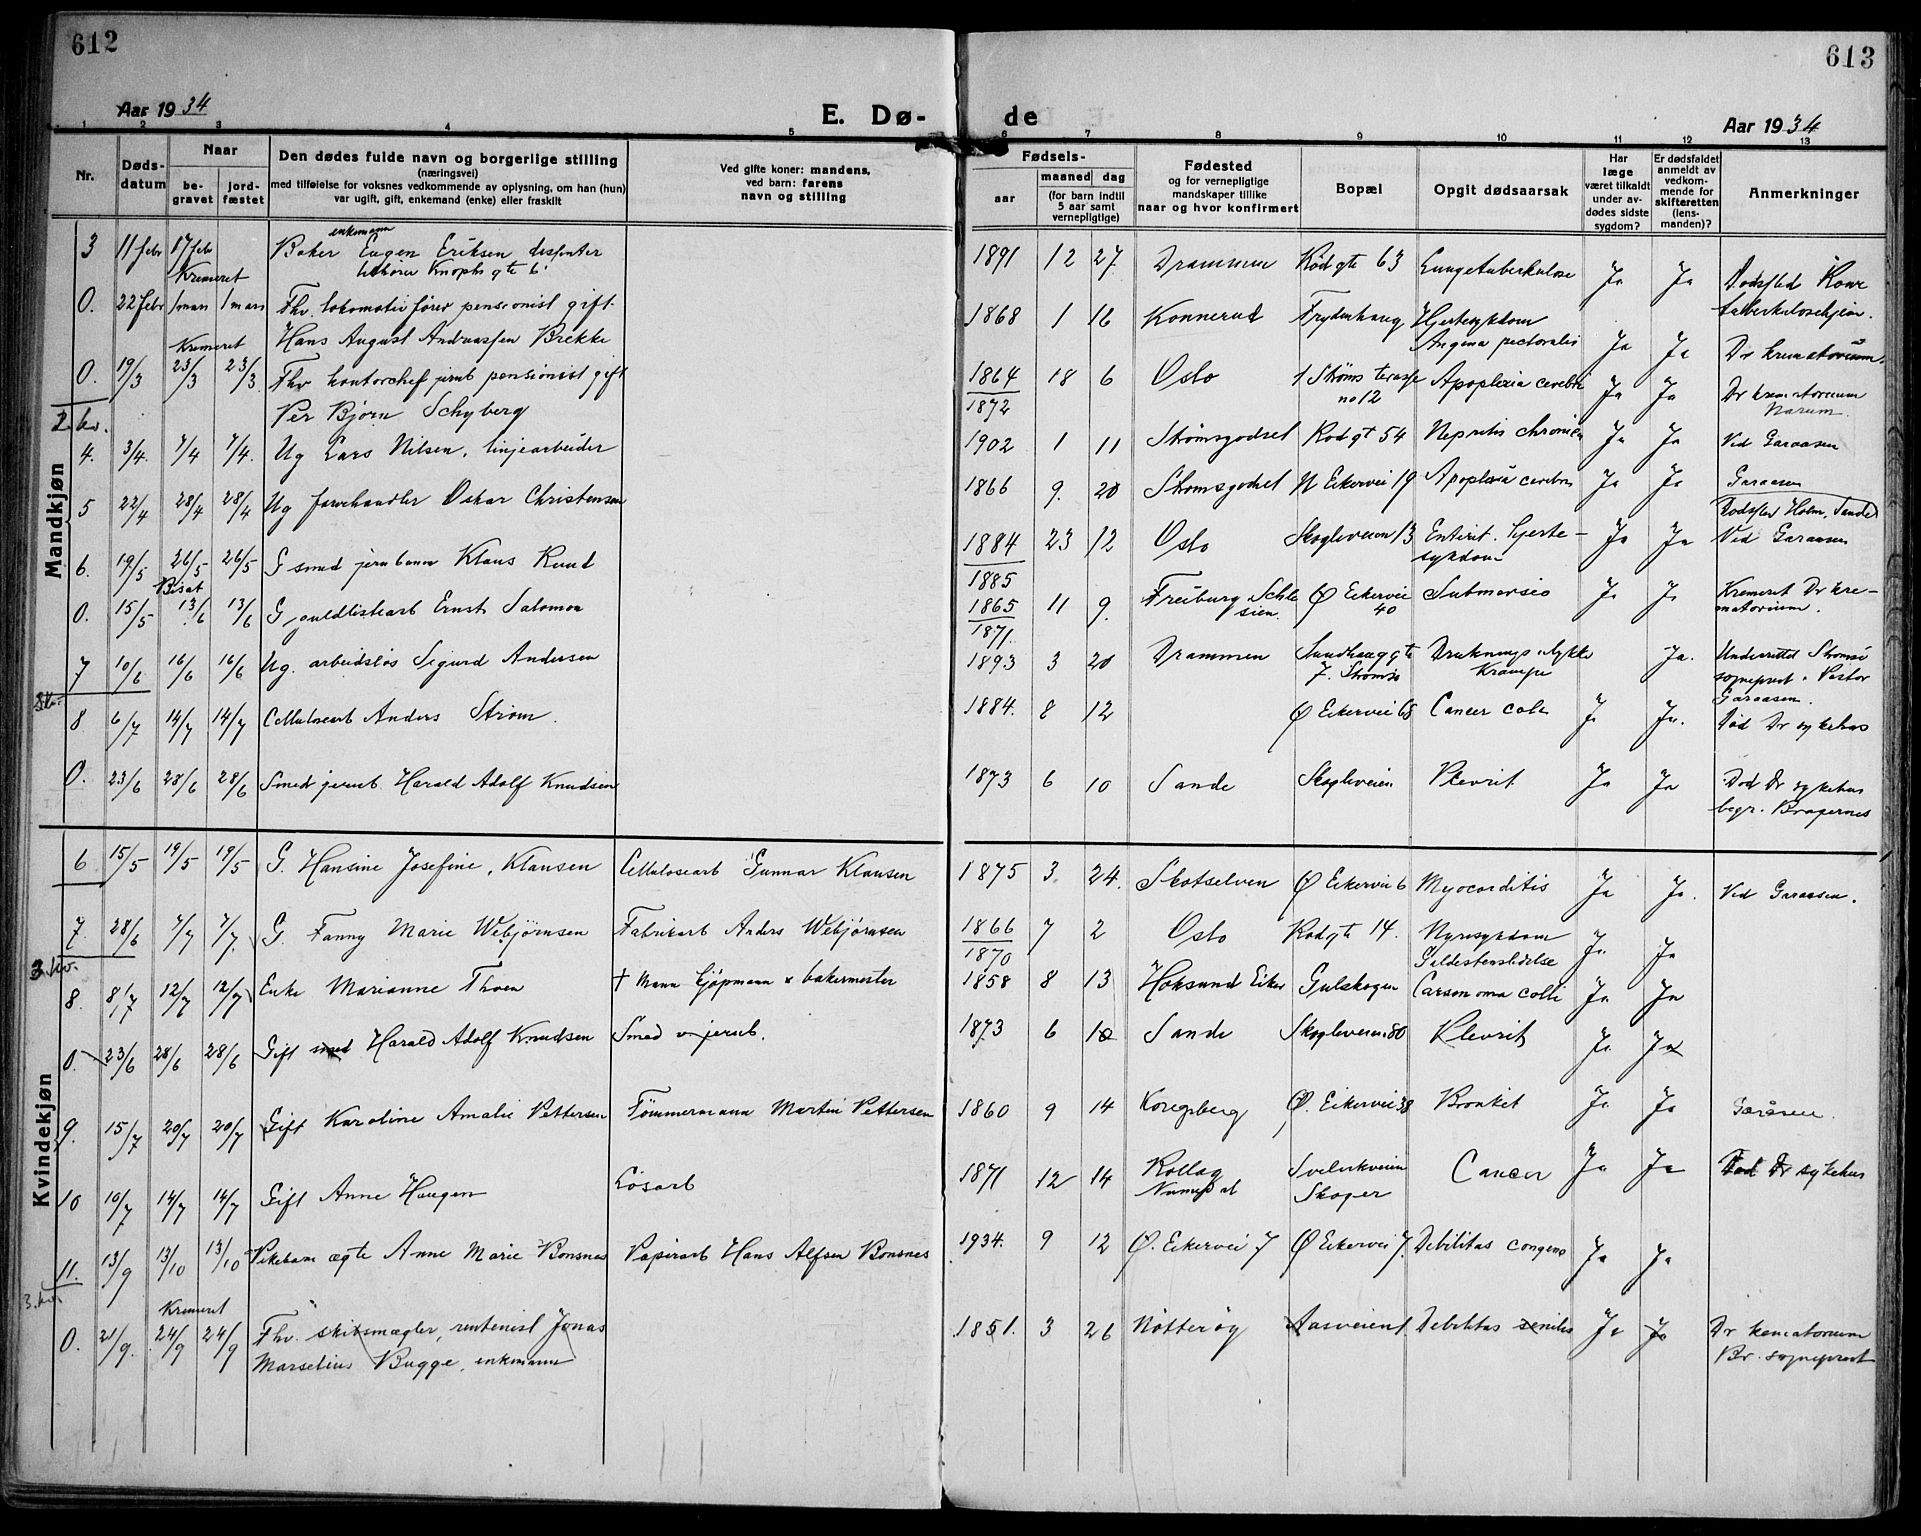 612
613
Aar 1934
E. Dø-
de
Aar 1934
1 2 3 4 5 6 7 8 9 10 11 12 13
Nr.
Døds-
datum
Naar
be-
gravet
jord-
fæstet
Den dødes fulde navn og borgerlige stilling
(næringsvei)
med tilføielse for voksnes vedkommende av oplysning, om han (hun)
var ugift, gift, enkemand (enke) eller fraskilt
Ved gifte koner: mandens,
ved barn: farens
navn og stilling
Fødsels-
aar
maaned dag
(for barn indtil
5 aar samt
vernepligtige)
Fødested
og for vernepligtige
mandskaper tillike
naar og hvor konfirmert
Bopæl
Opgit dødsaarsak
Har
læge
været tilkaldt
under av-
dødes sidste
sygdom?
Er dødsfaldet
anmeldt av
vedkom-
mende for
skifteretten
(lens-
manden)?
Anmerkninger
Mandkjøn
enkemann
3 11 febr 17 febr Baker Eugen Eriksen 1891 12 27 Drammen Rødgte 63 Lungetuberkulose Ja Ja Dødsted
Kremeret
0. 22 febr 1 mars 1 mars Fhv. lokomotivfører pensionist gift 1868 1 16 Konnerud Frydenhaug Hjertesykdom
Hans August Andreassen Brekke Angina pectoralis Ja Ja Dr krematorium.
Kremeret
0. 19/3 23/3 23/3 Fhv kontorchef jernb pensionist gift 1864 18 6 Oslo 1 Strøms terasse Apoplexia cerebri Ja Ja Dr krematorium
Per Bjørn Schyberg 1872 no 12
2. kv.
4. 3/4. 7/4 7/4. Ug Lars Nilsen, linjearbeider 1902 1 11 Strømsgodset Rødgt 54 Ja Ja Ved Garaasen
5 22/4 28/4 28/4 Ug farvehandler Oskar Christensen 1866 9. 20 Strømsgodset N Eikervei 19 Apoplexia cerebri Ja Ja Garaasen
Dødsted Holm, Sande
6. 19/5 26/5 26/5 G smed jernbanen Klaus Ruud 1884 23 12 Oslo Skogliveien 13 Enterit. hjerte- Ja Ja Ved Garaasen
1885 sykdom
Bisat
0. 15/5 13/6 13/6 G, Ernst Salomon 1865 11 9. Freiburg Schle Ø Eikervei Submersio Ja Ja Kremert Dr kre-
1871. sien. 40 matorium.
7 10/6 16/6 16/6 Ug. arbeidsløs Sigurd Andersen 1893 3 20 Drammen Sundhauggte Drukningsulykke Ja. Underrettet Strømsø
7. Strømsø Krampe sogneprest. Pastor
Garaasen.
8 6/7 14/7 14/7 Cellulosearb Anders Strøm. 1884. 8 12 Ø Eikervei 65 Cancer coli Ja Ja. Død Dr sykehus
0. 23/6 28/6 28/6 Smed jernb. Harald Adolf Knudsen 1873 6 10 Sande Skogliveien Plevrit Ja Ja Død Dr sykehus
begr. Bragernes
Kvindekjøn
6 15/5 19/5 19/5 G. Hansine Josefine, Klausen Cellulosearb Gunnar Klausen 1875 3 24. Skotselven Ø Eikervei 6 Myocarditis Ja Ja. Ved Garaasen.
7. 28/6 7/7 7/7. G. Fanny Marie Webjørnsen Fabrikarb Anders Webjørnsen 1866 7 2 Oslo Rødgte 14. Nyresykdom Ja Ja
1870 Galdestenslidelse
8 8/7 12/7 12/7 Enke Marianne Thoen † Mann kjøpmann & bakermester 1858 8 13 Hoksund Eiker Gulskogen Carsonoma colli Ja Ja
0. 23/6 28/6 28/6 Gift smed Harald Adolf Knudsen Smed v jernb. 1873 6 10 Sande Skogliveien 80 Plevrit Ja Ja
9. 15/7 20/7 20/7 Gift Karoline Amalie Pettersen Tømmermann Martin Pettersen 1860 9 14 Kongsberg Ø. Eikervei 38 Bronkit Ja Ja Garåsen.
10 10/7 14/7 14/7 Gift Anne Haugen Løsarb 1871 12 14 Rollag Svelvikveien Cancer Ja Ja Død Dr sykehus
Numedal Skoger
11. 13/9 13/10 13/10 Pikebarn ægte Anne Marie Bonsnes Papirarb Hans Alfsen Bonsnes 1934. 9 12 Ø. Eikervei 7 Ø Eikervei 7. Debilitas congen Ja Ja
3. kv.
Kremeret
0. 21/9. 24/9 24/9 Fhv. skibsmægler, rentenist Jonas 1851. 3 26 Nøtterøy Aasveien 1 Debilitas senilis Ja Ja Dr krematorium
Marselius Bugge, enkemann Br. sogneprest